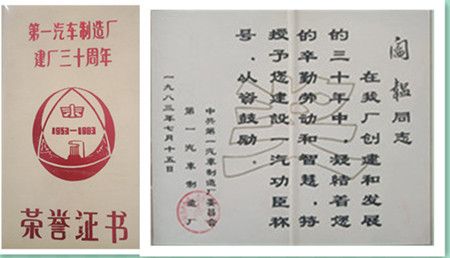 第一汽车制造厂
建厂三十周年
1953—1983
荣誉证书
阎韬同志
在我厂创建和发展
的三十年中，凝结着您
的辛勤劳动和智慧，特
授予您建设一汽功臣称
号，以资鼓励。
中共第一汽车制造厂委员会
第一汽车制造厂
一九八三年七月十五日